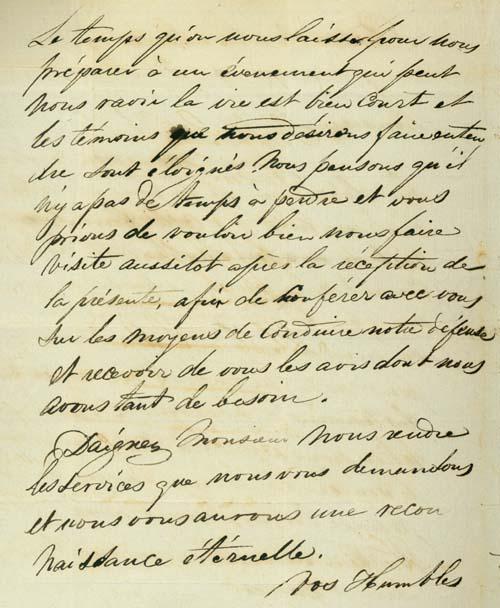 Le temps qu'on nous laisse pour nous
préparer à un évenement qui peut
nous ravir la vie est bien court et
les témoins que nous désirons faire enten
dre sont éloignés. Nous pensons qu'il
n'y a pas de temps à perdre et vous
prions de vouloir bien nous faire
visite aussitot après la réception de
la présente, afin de conférer avec vous
sur les moyens de conduire notre défense
et recevoir de vous les avis dont nous
avons tant de besoin.
Daignez Monsieur nous rendre
les services que nous vous demandons
et nous vous aurons une recon
naissance éternelle.
Vos Humbles